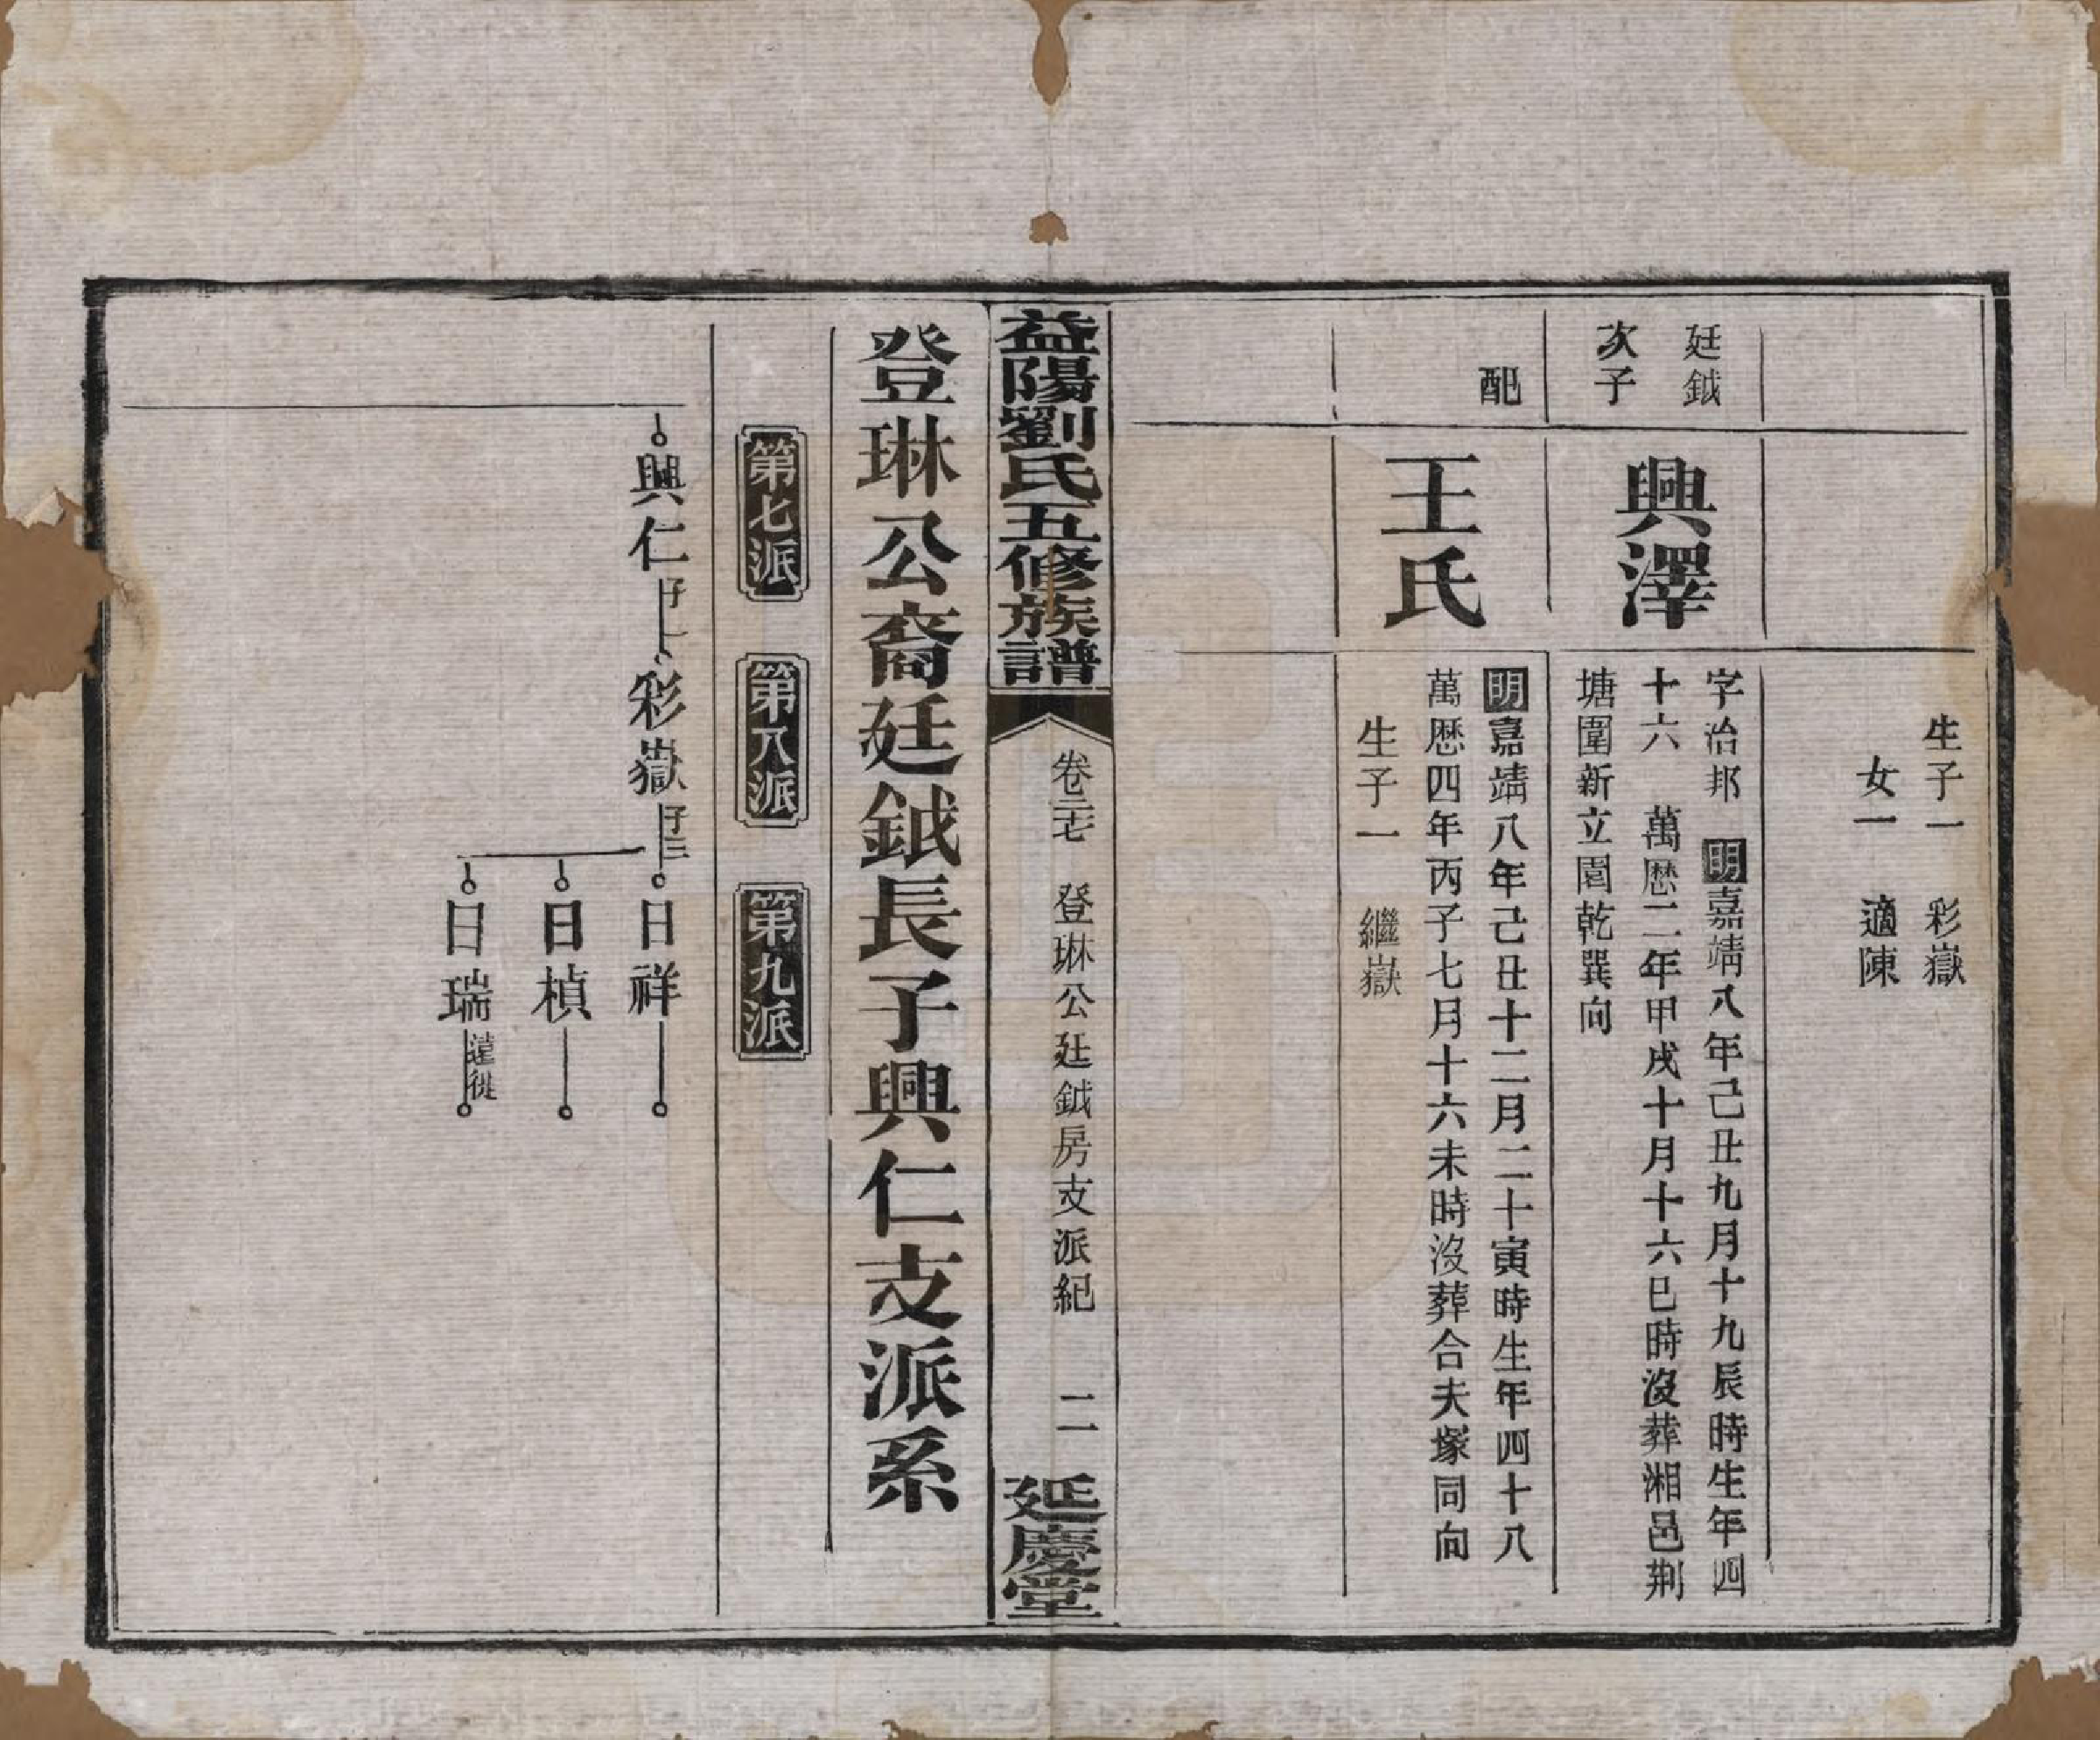 生子一　彩嶽
女一　適陳
廷鉞
次子
興澤
字治邦　明嘉靖八年己丑九月十九辰時生年四
十六　萬歷二年甲戌十月十六巳時沒葬湘邑荆
塘圍新立園乾巽向
配
王氏
明嘉靖八年己丑十二月二十寅時生年四十八
萬歷四年丙子七月十六未時沒葬合夫塚同向
生子一　繼嶽
益陽劉氏五修族譜
卷二七　登琳公廷鉞房支派紀　二
延慶堂
登琳公裔廷鉞長子興仁支派系
第七派　第八派　第九派
興仁　子一　彩嶽　子三　日祥
日楨
日瑞　遠徙